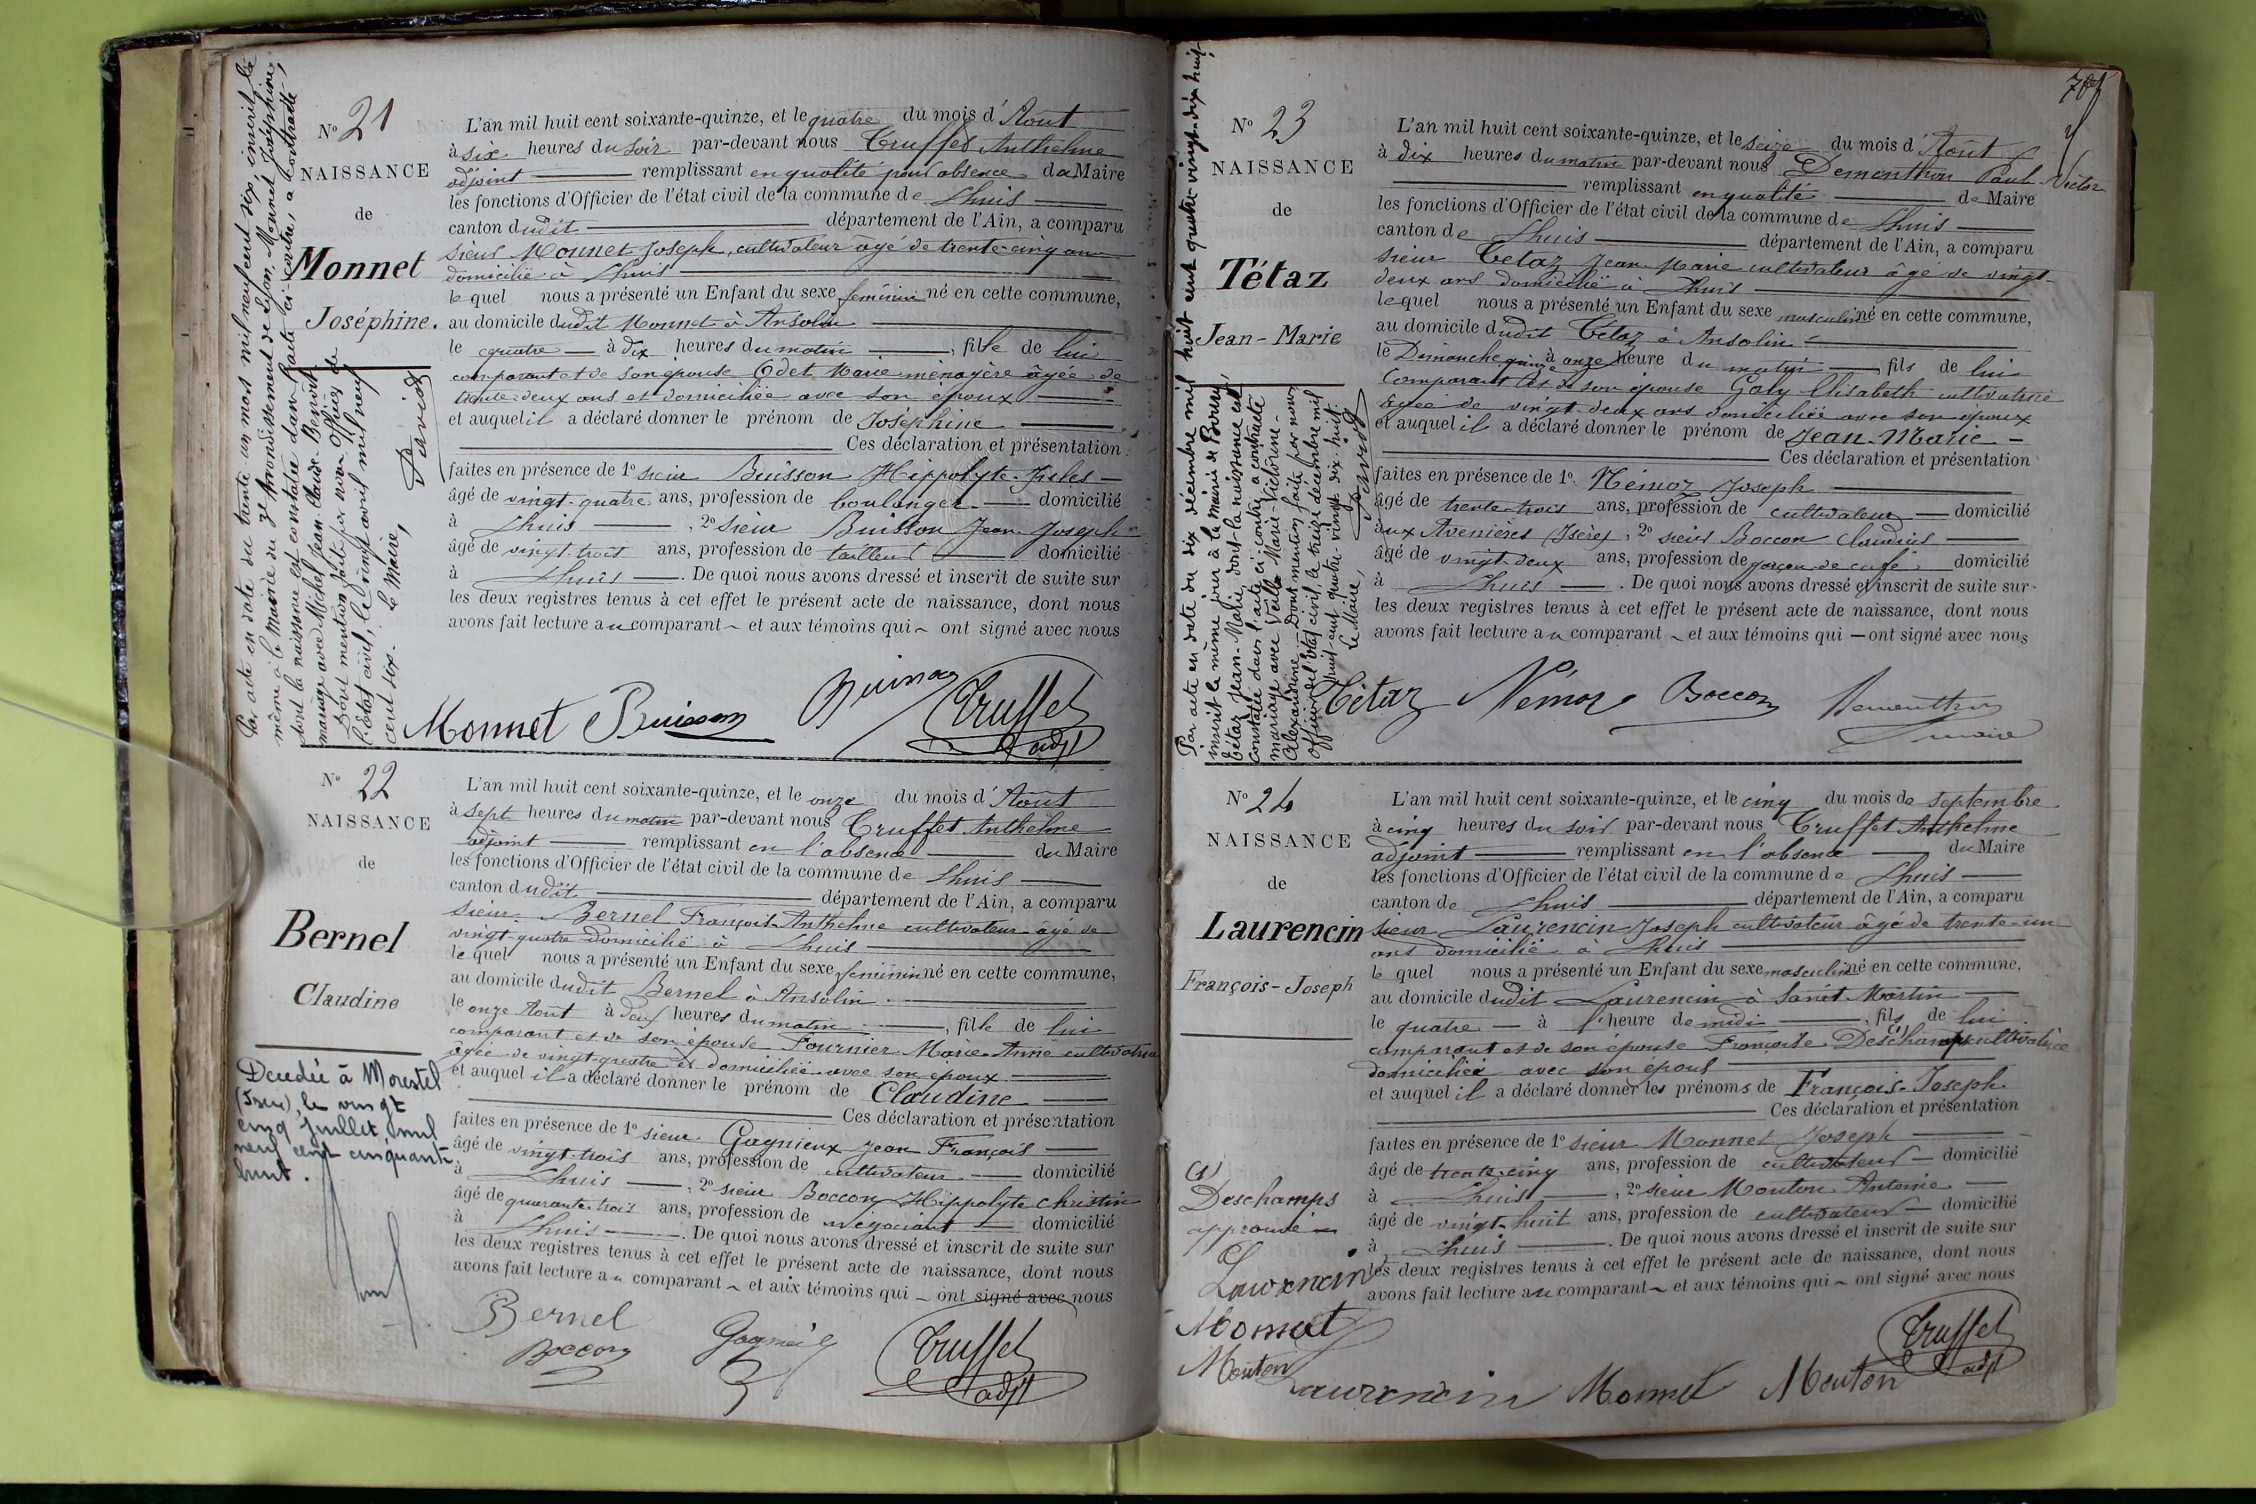 Nº 21
NAISSANCE
de
Monnet
Joséphine.
L'an mil huit cent soixante-quinze, et le quatre du mois d'Août
à six heures du soir par-devant nous Truffet Anthelme
adjoint remplissant en qualité pour absence du Maire
les fonctions d'Officier de l'état civil de la commune de Lhuis
canton dudit département de l'Ain, a comparu
sieur Monnet Joseph, cultivateur âgé de trente-cinq ans
domicilié à Lhuis
lequel nous a présenté un Enfant du sexe féminin né en cette commune,
au domicile dudit Monnet à Ansolin
le quatre à dix heures du matin, fille de lui
comparant et de son épouse Odet Marie ménagère âgée de
trente-deux ans et domiciliée avec son époux
et auquel il a déclaré donner le prénom de Joséphine
Ces déclaration et présentation
faites en présence de 1º sieur Buisson Hippolyte Jules
âgé de vingt-quatre ans, profession de boulanger domicilié
à Lhuis, 2º sieur Buisson Jean Joseph
âgé de vingt-trois ans, profession de tailleur domicilié
à Lhuis. De quoi nous avons dressé et inscrit de suite sur
les deux registres tenus à cet effet le présent acte de naissance, dont nous
avons fait lecture au comparant et aux témoins qui ont signé avec nous
Monnet Buisson Buisson Truffet
adjt
Par acte en date du trente un mars mil neuf cent six, inscrit le
même à la mairie du 3e Arrondissement de Lyon, Monnet Joséphine
dont la naissance est constatée dans l'acte ci-contre, a contracté
mariage avec Michel Jean-Claude-Benoît
Dont mention faite par nous Officier de
l'état civil, le vingt avril mil neuf
cent six. Le Maire,
Nº 22
NAISSANCE
de
Bernel
Claudine
L'an mil huit cent soixante-quinze, et le onze du mois d'Août
à sept heures du matin par-devant nous Truffet Anthelme
adjoint remplissant en l'absence du Maire
les fonctions d'Officier de l'état civil de la commune de Lhuis
canton dudit département de l'Ain, a comparu
sieur Bernel François-Anthelme cultivateur âgé de
vingt-quatre domicilié à Lhuis
lequel nous a présenté un Enfant du sexe féminin né en cette commune,
au domicile dudit Bernel à Ansolin
le onze Août à deux heures du matin, fille de lui
comparant et de son épouse Fournier Marie-Anne cultivatrice
âgée de vingt-quatre et domiciliée avec son époux
et auquel il a déclaré donner le prénom de Claudine
Ces déclaration et présentation
faites en présence de 1º sieur Gagnieux Jean François
âgé de vingt-trois ans, profession de cultivateur domicilié
à Lhuis, 2º sieur Boccon Hippolyte Christin
âgé de quarante-trois ans, profession de négociant domicilié
à Lhuis. De quoi nous avons dressé et inscrit de suite sur
les deux registres tenus à cet effet le présent acte de naissance, dont nous
avons fait lecture au comparant et aux témoins qui ont signé avec nous
Bernel
Boccon Truffet
adjt
Décédée à Morestel
(Isère), le vingt
cinq juillet mil
neuf cent cinquante
huit.
Nº 23
NAISSANCE
de
Tétaz
Jean-Marie
L'an mil huit cent soixante-quinze, et le seize du mois d'Août
à dix heures du matin par-devant nous Demonthon Paul Victor
remplissant en qualité de Maire
les fonctions d'Officier de l'état civil de la commune de Lhuis
canton de Lhuis département de l'Ain, a comparu
sieur Tétaz Jean-Marie cultivateur âgé de vingt-
deux ans domicilié à Lhuis
lequel nous a présenté un Enfant du sexe masculin né en cette commune,
au domicile dudit Tétaz à Ansolin
le Dimanche quinze à onze heure du matin fils de lui
comparant et de son épouse Galy Elisabeth cultivatrice
âgée de vingt-deux ans domiciliée avec son époux
et auquel il a déclaré donner le prénom de Jean-Marie
Ces déclaration et présentation
faites en présence de 1º Némoz Joseph
âgé de trente-trois ans, profession de cultivateur domicilié
aux Avenières (Isère), 2º sieur Boccon Claudius
âgé de vingt-deux ans, profession de garçon de café domicilié
à Lhuis. De quoi nous avons dressé et inscrit de suite sur
les deux registres tenus à cet effet le présent acte de naissance, dont nous
avons fait lecture au comparant et aux témoins qui ont signé avec nous
Tétaz Némoz Boccon Demonthon
maire
Par acte en date du dix décembre mil huit cent quatre-vingt-dix-huit
inscrit le même jour à la mairie de
Tétaz Jean-Marie, dont la naissance est
constatée dans l'acte ci-contre, a contracté
mariage avec Marie-Victorine-
Alexandrine. Dont mention faite par nous
Officier de l'état civil, le treize décembre mil
huit cent quatre-vingt-dix-huit.
Le Maire,
Nº 24
NAISSANCE
de
Laurencin
François-Joseph
L'an mil huit cent soixante-quinze, et le cinq du mois de septembre
à cinq heures du soir par-devant nous Truffet Anthelme
adjoint remplissant en l'absence du Maire
les fonctions d'Officier de l'état civil de la commune de Lhuis
canton de Lhuis département de l'Ain, a comparu
sieur Laurencin Joseph cultivateur âgé de trente-un
ans domicilié à Lhuis
lequel nous a présenté un Enfant du sexe masculin né en cette commune,
au domicile dudit Laurencin à Saint Martin
le quatre à l'heure de midi, fils de lui
comparant et de son épouse Françoise Deschamps cultivatrice
domiciliée avec son époux
et auquel il a déclaré donner les prénoms de François-Joseph
Ces déclaration et présentation
faites en présence de 1º sieur Monnet Joseph
âgé de trente-cinq ans, profession de cultivateur domicilié
à Lhuis, 2º sieur Mouton Antoine
âgé de vingt-huit ans, profession de cultivateur domicilié
à Lhuis. De quoi nous avons dressé et inscrit de suite sur
les deux registres tenus à cet effet le présent acte de naissance, dont nous
avons fait lecture au comparant et aux témoins qui ont signé avec nous
Deschamps
approuvé
Laurencin
Monnet
Mouton
Laurencin Monnet Mouton Truffet
adjt